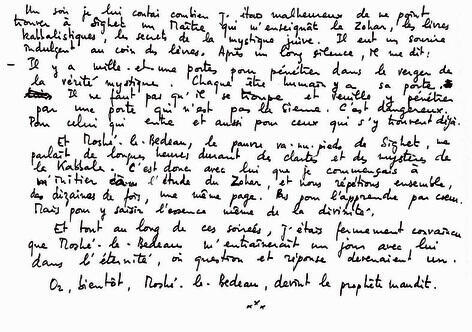 Un soir je lui contai combien j'étais malheureux de ne point
trouver à Sighet un Maître qui m'enseignât le Zohar, les livres
kabbalistiques, les secrets de la mystique juive. Il eut un sourire
indulgent au coin des lèvres. Après un long silence, il me dit:
- Il y a mille-et-une portes pour pénétrer dans le verger de
la vérité mystique. Chaque être humain a sa porte.
Il ne faut pas qu'il se trompe et veuille pénétrer
par une porte qui n'est pas la sienne. C'est dangereux.
Pour celui qui entre et aussi pour ceux qui s'y trouvent déjà.
Et Moshé-le-Bedeau, le pauvre va-nu-pieds de Sighet, me
parlait de longues heures durant des clartés et des mystères de
la Kabbale. C'est donc avec lui que je commençais à
m'initier à l'étude du Zohar, et nous répétions ensemble,
des dizaines de fois, une même page. Pas pour l'apprendre par coeur.
Mais pour y saisir l'essence même de la divinité.
Et tout au long de ces soirées, j'étais fermement convaincu
que Moshé-le-Bedeau m'entraînerait un jour avec lui
dans l'éternité, où question et réponse devenaient un.
Or, bientôt, Moshé-le-Bedeau, devint le prophète maudit.
***